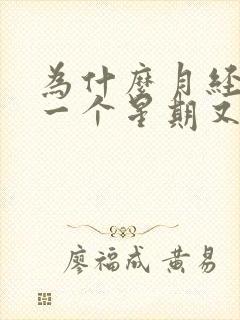 为什麼月经
一个星期又
廖福成 黄易